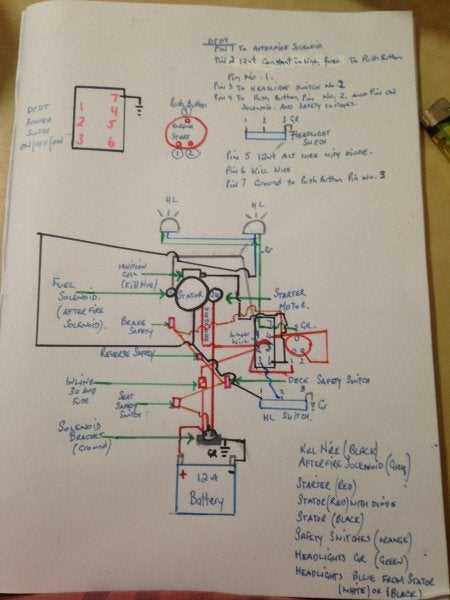 DPDT
Pin 1 To Afterfire Solenoid
Pin 2 12vt Constant
To Push Button
Pin No. 1.
Pin 3 To Headlight Switch No 2
Pin 4 To Push Button Pin No. 2, and Pin on
Solenoid and Safety Switches.
1 2 3 GR
Headlight
Switch
Pin 5 12vt Alt wire with diode.
Pin 6 Kill Wire
Pin 7 Ground to Push Button Pin No. 3
DPDT
Rocker
Switch
ON/OFF/ON
7
1 4
2 5
3 6
Push Button
3
Engine
Start
1 2
HL
HL
Gr
Ignition
Coil
(Kill Wire)
Stator
Fuel
Solenoid.
(After Fire
Solenoid).
Starter
Motor.
Brake
Safety
GR.
Reverse Safety
Inline
30 amp
Fuse
Seat
Safety
Switch
Deck Safety Switch
1 2 3
Gr
HL Switch.
Solenoid
Bracket
(Ground)
GR
+ -
12v
Battery
Kill Wire (Black)
Afterfire Solenoid (Grey)
Starter (Red)
Stator (Red) with Diode
Stator (Black)
Safety Switches (Orange)
Headlights Gr (Green)
Headlights Blue From Stator
(White) or (Black)